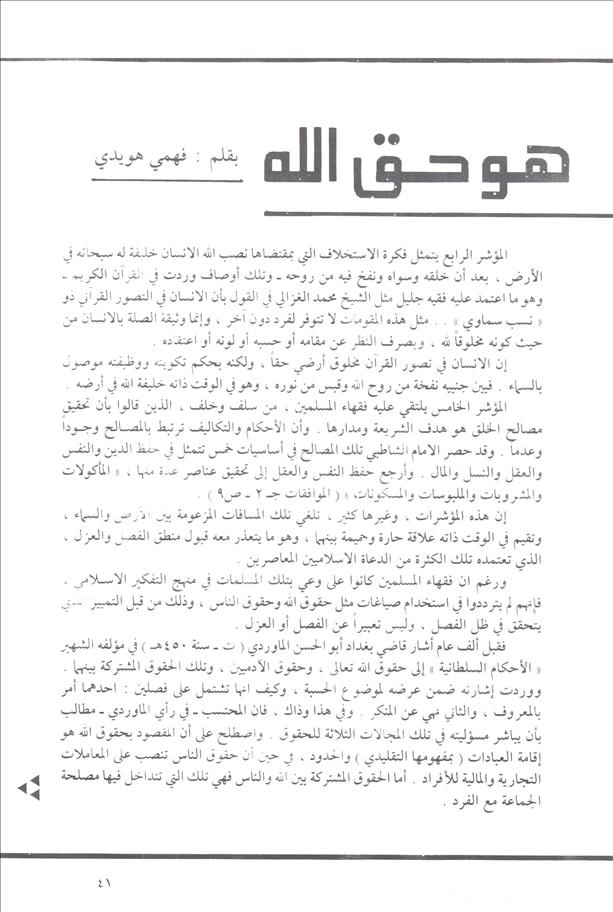 هو حق الله
بقلم : فهمي هويدي
المؤشر الرابع يتمثل فكرة الاستخلاف التي بمقتضاها نصب الله الانسان خليفة له سبحانه في
الأرض ، بعد أن خلقه وسواه ونفخ فيه من روحه ـ وتلك أوصاف وردت في القرآن الكريم ـ
وهو ما اعتمد عليه فقيه جليل مثل الشيخ محمد الغزالي في القول بأن الانسان في التصور القرآني ذو
« نسب سماوي » . . مثل هذه المقومات لا تتوفر لفرد دون آخر ، وإنما وثيقة الصلة بالانسان من
حيث كونه مخلوقاً لله ، وبصرف النظر عن مقامه أو حسبه أو لونه أو اعتقاده .
إن الانسان في تصور القرآن مخلوق أرضي حقاً ، ولكنه بحكم تكوينه ووظيفته موصول
بالسماء . فبين جنبيه نفخة من روح الله وقبس من نوره ، وهو في الوقت ذاته خليفة الله في أرضه .
المؤشر الخامس يلتقي عليه فقهاء المسلمين ، من سلف وخلف ، الذين قالوا بأن تحقيق
مصالح الخلق هو هدف الشريعة ومدارها . وأن الأحكام والتكاليف ترتبط بالمصالح وجوداً
وعدماً . وقد حصر الامام الشاطبي تلك المصالح في أساسيات خمس تتمثل في حفظ الدين والنفس
والعقل والنسل والمال . وأرجع حفظ النفس والعقل إلى تحقيق عناصر عدة منها ، « المأكولات
والمشروبات والملبوسات والمسكونات » ( الموافقات جـ ٢ ـ ص٩ ) .
إن هذه المؤشرات ، وغيرها كثير ، تلغي تلك المسافات المزعومة بين الأرض والسماء ،
وتقيم في الوقت ذاته علاقة حارة وحميمة بينهما ، وهو ما يتعذر معه قبول منطق الفصل والعزل ،
الذي تعتمده تلك الكثرة من الدعاة الاسلاميين المعاصرين .
ورغم ان فقهاء المسلمين كانوا على وعي بتلك المسلمات في منهج التفكير الاسلامي ،
فإنهم لم يترددوا في استخدام صياغات مثل حقوق الله وحقوق الناس ، وذلك من قبل التمييز الذي
يتحقق في ظل الفصل ، وليس تعبيراً عن الفصل أو العزل .
فقبل ألف عام أشار قاضي بغداد أبو الحسن الماوردي ( ت ـ سنة ٤٥٠هـ ) في مؤلفه الشهير
« الأحكام السلطانية » إلى حقوق الله تعالى ، وحقوق الآدميين ، وتلك الحقوق المشتركة بينهما .
ووردت إشارته ضمن عرضه لموضوع الحسبة ، وكيف انها تشتمل على فصلين : احدهما أمر
بالمعروف ، والثاني نهي عن المنكر . وفي هذا وذاك ، فان المحتسب ـ في رأي الماوردي ـ مطالب
بأن يباشر مسؤليته في تلك المجالات الثلاثة للحقوق . واصطلح على أن المقصود بحقوق الله هو
إقامة العبادات ( بمفهومها التقليدي ) والحدود ، في حين أن حقوق الناس تنصب على المعاملات
التجارية والمالية للأفراد . أما الحقوق المشتركة بين الله والناس فهي تلك التي تتداخل فيها مصلحة
الجماعة مع الفرد .
٤١